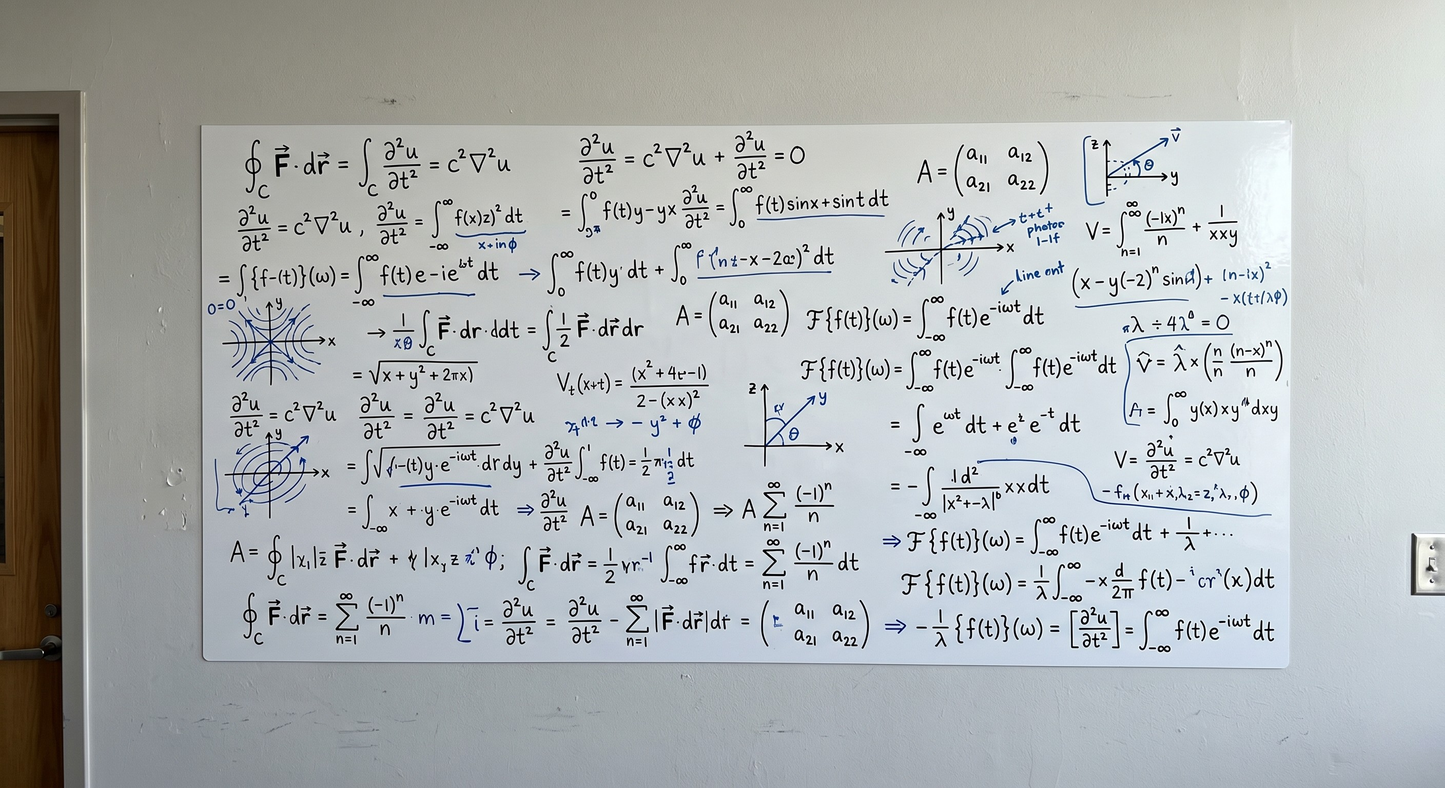 ∮_C F⃗·dr⃗ = ∫_C ∂²u/∂t² = c²∇²u
∂²u/∂t² = c²∇²u + ∂²u/∂t² = 0
A = (a₁₁ a₁₂ a₂₁ a₂₂)
z v⃗ θ y
∂²u/∂t² = c²∇²u , ∂²u/∂t² = ∫_{-∞}^{∞} f(x)z)² dt
x+inϕ
= ∫^0 f(t)y-yx ∂²u/∂t² = ∫_0^∞ f(t)sinx+sint dt
y x
t+t⁺
photor
1-lf
V = ∫_{n=1}^{∞} (-1x)ⁿ/n + 1/xxy
= ∫{f-(t)}(ω) = ∫_{-∞}^{∞} f(t)e-ie^{ωt} dt → ∫_0^∞ f(t)y·dt + ∫_0^∞ -x-2α)² dt
line ont
(x-y(-2)ⁿ sind)+ (n-ix)²
-x(t+/λϕ)
0=0
y x
→ 1/xθ ∫_C F⃗·dr·ddt = ∫_C 1/2 F⃗·dr⃗dr
A = (a₁₁ a₁₂ a₂₁ a₂₂)
ℱ{f(t)}(ω) = ∫_{-∞}^{∞} f(t)e^{-iωt} dt
λ ÷ 4λ⁰ = 0
= √(x+y²+2πx)
V_t(x+t) = (x²+4t-1)/(2-(xx)²)
ℱ{f(t)}(ω) = ∫_{-∞}^{∞} f(t)e^{-iωt}· ∫_{-∞}^{∞} f(t)e^{-iωt} dt
V̂ = λ̂ × (n/n (n-x)ⁿ/n)
∂²u/∂t² = c²∇²u
∂²u/∂t² = ∂²u/∂t² = c²∇²u
→ -y² + ϕ
z y θ x
= ∫_{-∞} e^{ωt} dt + e^t e^{-t} dt
A = ∫_0^∞ y(x)xy dxy
y x
= ∫√(-(t)y·e^{-iωt}·dr dy + ∂²u/∂t² ∫_{-∞}^1 f(t) = 1/2 π dt
= -∫_{-∞} d²/|x²+-λ| xxdt
V = ∂²u/∂t² = c²∇²u
= ∫_{-∞} x+·y·e^{-iωt} dt ⇒ ∂²u/∂t² A = (a₁₁ a₁₂ a₂₁ a₂₂) ⇒ A Σ_{n=1}^{∞} (-1)ⁿ/n
⇒ ℱ{f(t)}(ω) = ∫_{-∞}^{∞} f(t)e^{-iωt} dt + 1/λ + ···
A = ∮_C |x₁|z̄ F⃗·dr⃗ + |x,z ϕ; ∫_C F⃗·dr⃗ = 1/2 vr⁻¹ ∫_{-∞}^{∞} fr⃗·dt = Σ_{n=1}^{∞} (-1)ⁿ/n dt
ℱ{f(t)}(ω) = 1/λ ∫_{-∞}^{∞} -x d/2π f(t) - (x)dt
∮_C F⃗·dr⃗ = Σ_{n=1}^{∞} (-1)ⁿ/n · m = i = ∂²u/∂t² = ∂²u/∂t² - Σ_{n=1}^{∞} |F⃗·dr⃗|dr = (a₁₁ a₁₂ a₂₁ a₂₂) ⇒ -1/λ {f(t)}(ω) = [∂²u/∂t²] = ∫_{-∞}^{∞} f(t)e^{-iωt} dt